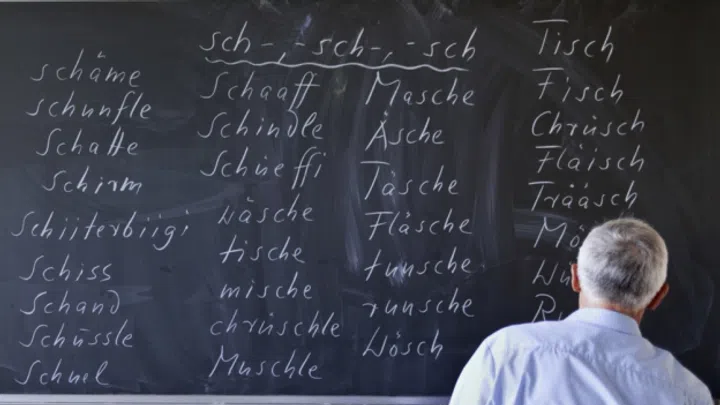 sch-, -sch-, -sch
schäme
schunfle
Schatte
Schirm
Schiiterbiigi
Schiss
Schand
Schüssle
Schnel
Schaaff
Schindle
Schüeffi
wäsche
tische
mische
chrüschle
Muschle
Masche
Äsche
Täsche
Fläsche
tunsche
runsche
Wösch
Tisch
Fisch
Chrüsch
Fläisch
Träasch